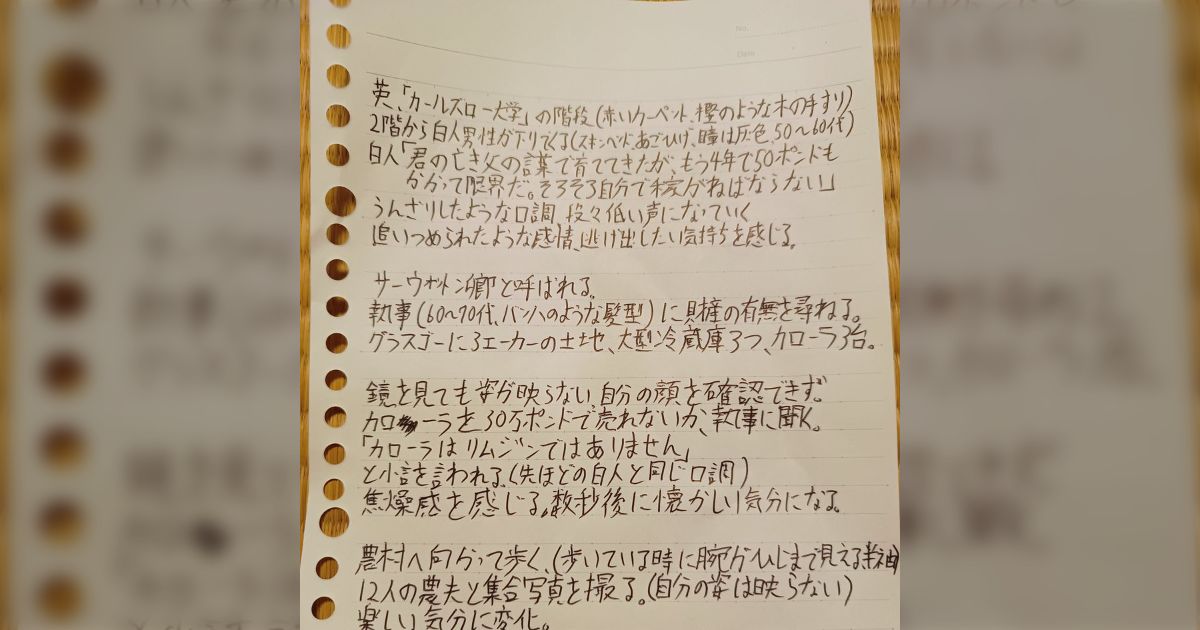 No.
Date
英、「カールズロー大学」の階段(赤いカーペット、樫のような木の手すり)
2階から白人男性が下りてくる(スキンヘッド、あごひげ、瞳は灰色、50〜60代)
白人「君の亡き父の言葉で育ててきたが、もう4年で50ポンドも
かかって限界だ。そろそろ自分で稼がねばならない」
うんざりしたような口調、段々低い声になっていく
追いつめられたような感情、逃げ出したい気持ちを感じる。
サーウォットン卿と呼ばれる。
執事(60〜70代、バッハのような髪型)に財産の有無を尋ねる。
グラスゴーに3エーカーの土地、大型冷蔵庫3つ、カローラ3台。
鏡を見ても姿が映らない、自分の顔を確認できず。
カローラを30万ポンドで売れないか、執事に聞く。
「カローラはリムジンではありません」
と小言を言われる。(先ほどの白人と同じ口調)
焦燥感を感じる。数秒後に懐かしい気分になる。
農村へ向かって歩く、(歩いている時に腕がひじまで見える半袖)
12人の農夫と集合写真を撮る。(自分の姿は映らない)
楽しい気分に変化。